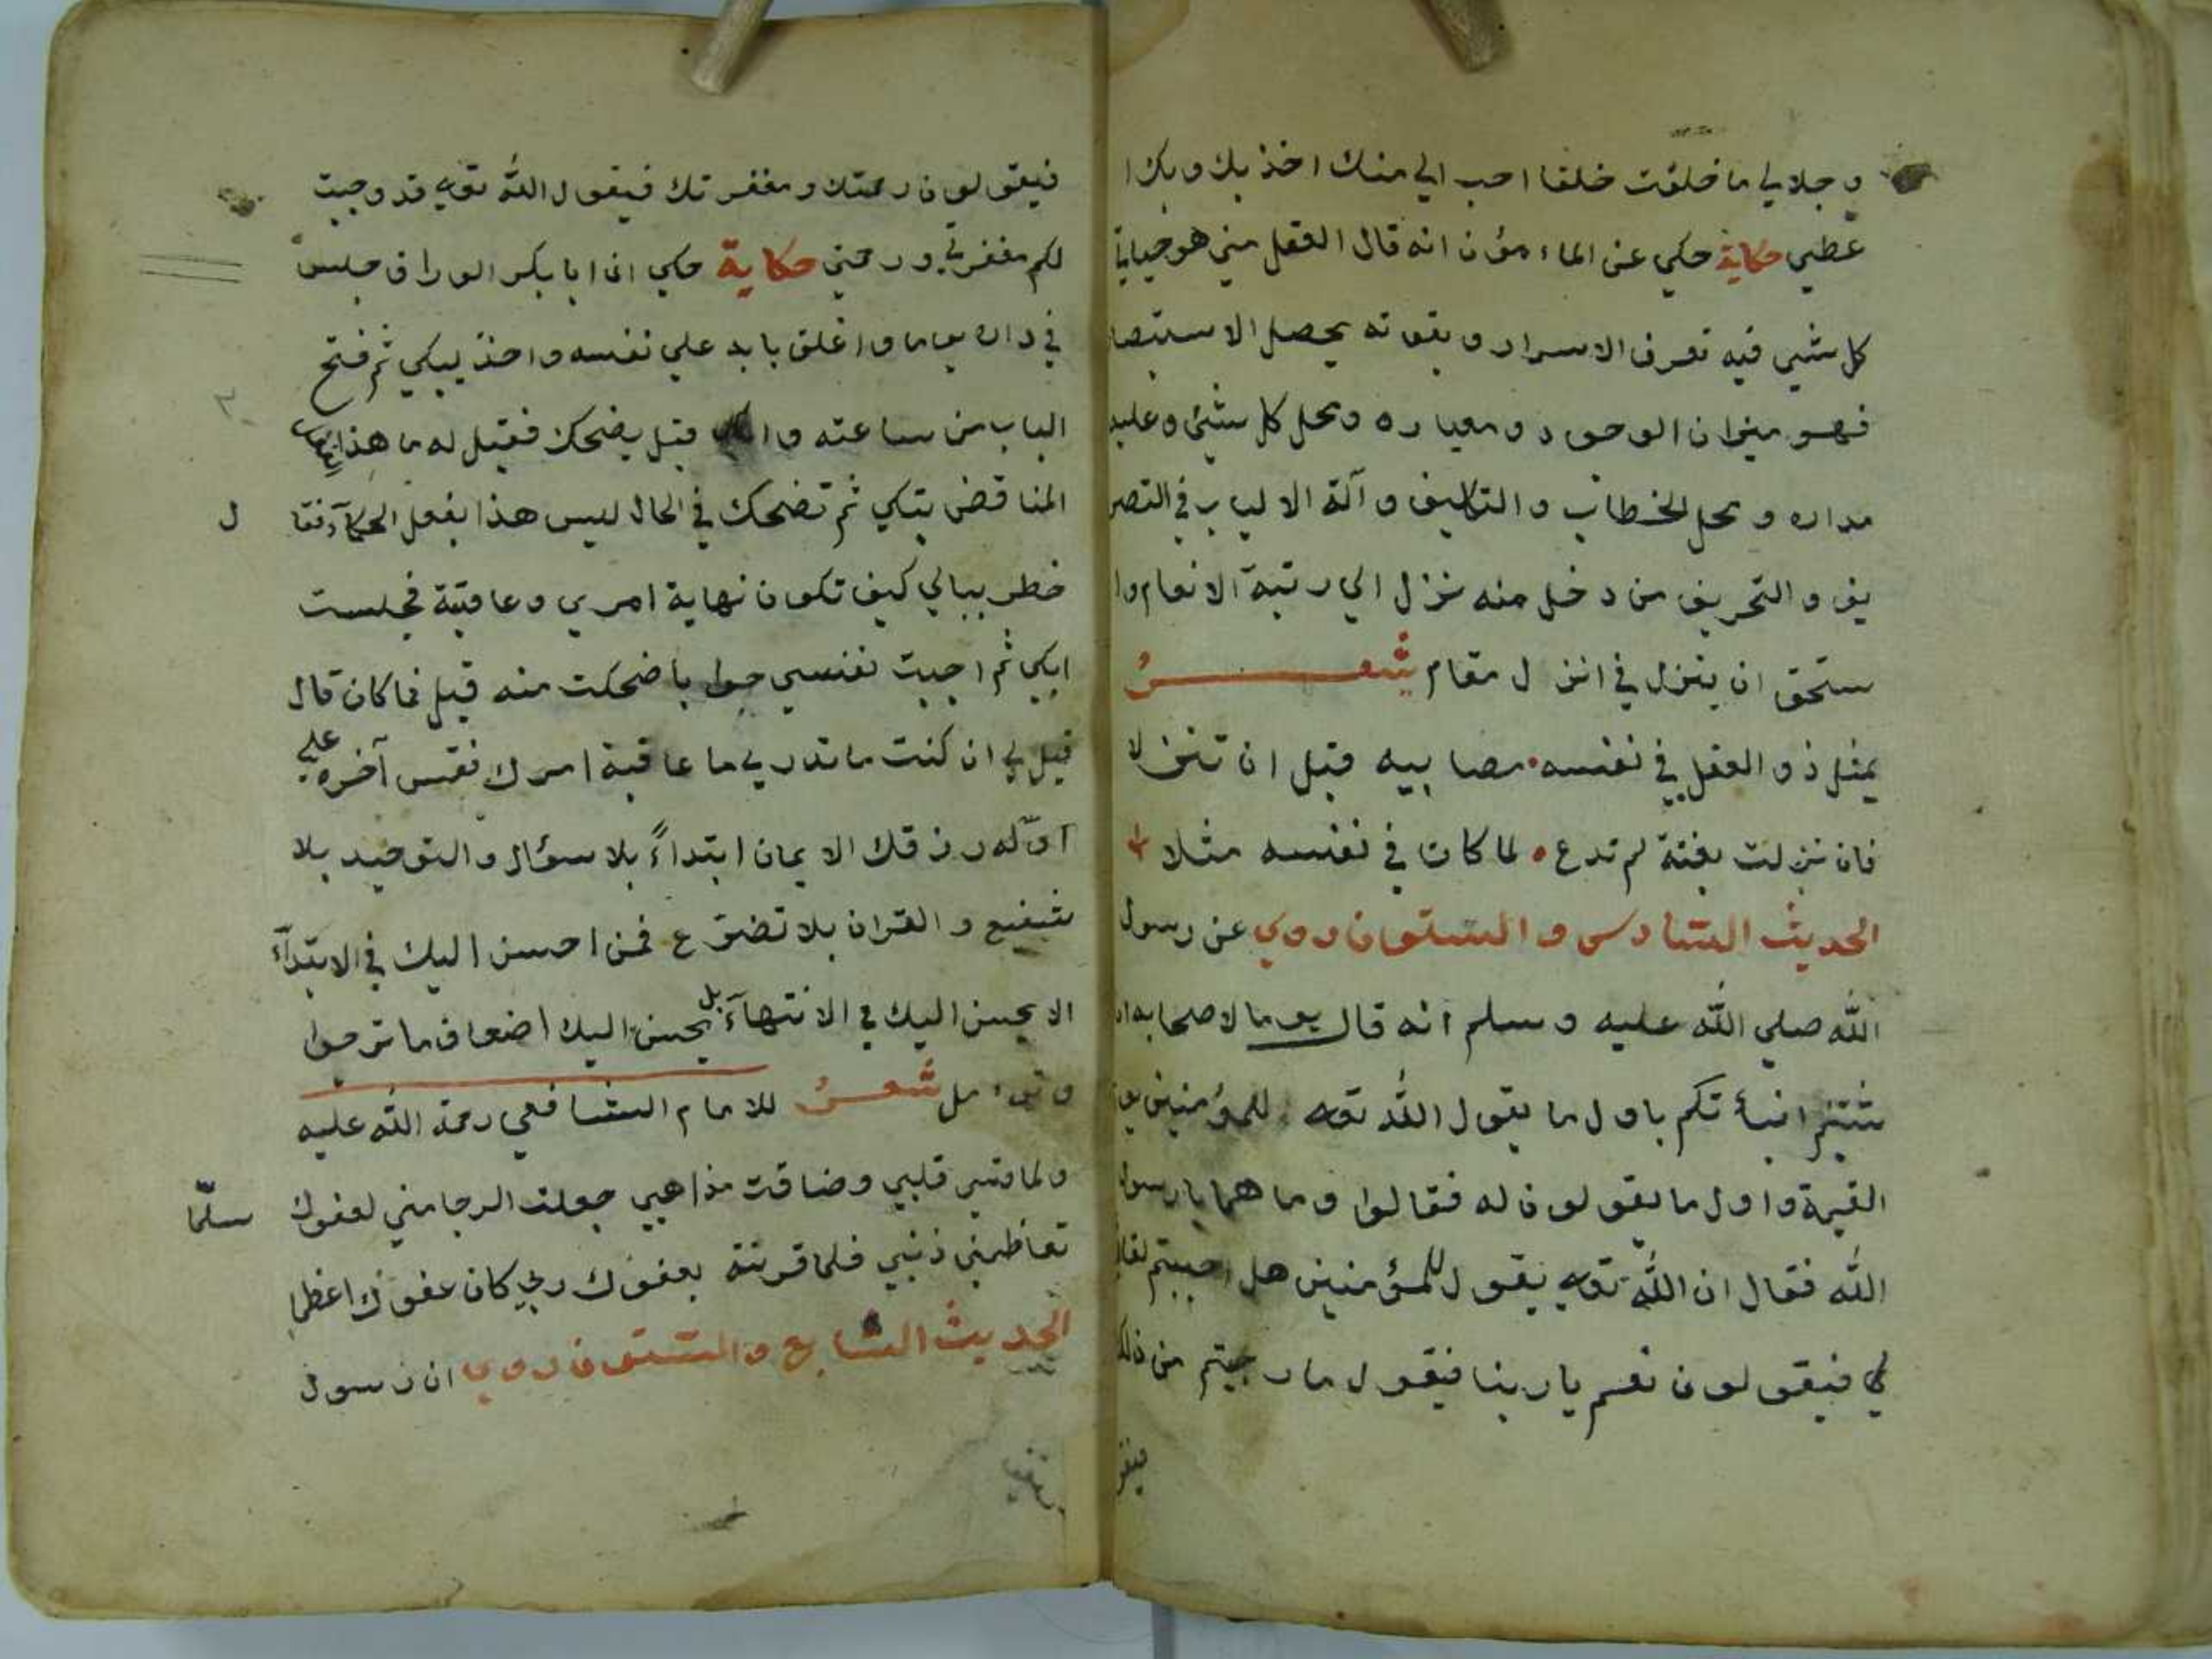 وجلالي ما خلقت خلقا احب الي منك اخذ بك وبك ا
عطي حكاية حكي عن الماءمؤن انه قال العقل مني هو حياة
كل شيي فيه تعرف الاسرار وبقوته يحصل الاستبصا
فهو ميزان الوجود ومعياره ومحل كل شئ وعليه
مداره ومحل الخطاب والتاليف وآلة الالباب في التصر
يف والتحريف من دخل منه نزل الي رتبة الانعام وا
ستحق ان ينزل في انزل مقام شعر
يمثل ذو العقل في نفسه مصابيه قبل ان تنزلا
فان نزلت بغتة لم تدع لما كان في نفسه مثلا
الحديث السادس والستون روي عن رسول
الله صلي الله عليه وسلم انه قال يوما لاصحابه ان
شئتم انبأتكم باول ما يقول الله تعه للمؤمنين يو
القيمة واول ما يقولون له فقالوا وما هما يا رسول
الله فقال ان الله تعه يقول للمؤمنين هل احببتم لقا
ئي فيقولون نعم يا ربنا فيقول ما رجيتم من ذلك
فيقو
فيقولون رحمتك ومغفرتك فيقول الله تعه قد وجبت
لكم مغفرتي ورحمتي حكاية حكي ان ابا بكر الوراق جلس
في داره يوما واغلق بابه علي نفسه واخذ يبكي ثم فتح
الباب من ساعته واقبل يضحك فقيل له ما هذا
المناقض يتكي ثم تضحك في الحال ليس هذا بفعل الحكمآء فقا ل
خطر ببالي كيف تكون نهاية امري وعاقبة فجلست
ابكي ثم اجيبت نفسي جوابا ضحكت منه قيل فما كان قال
قيل لي ان كنت ما تدري ما عاقبة امرك فقس آخره علي
اوّله رزقك الايمان ابتداءً بلا سؤال والتوحيد بلا
شفيع والقران بلا تضرّع فمن احسن اليك في الابتدآء
الا يحسن اليك في الانتهآء بل يحسن اليك اضعاف ما ترجوا
وتؤمل شعر للامام الشافعي رحمة الله عليه
ولما قسي قلبي وضاقت مذاهبي جعلت الرجا مني لعفوك سلّما
تعاظمني ذنبي فلما قرنته بعفوك ربي كان عفوك اعظما
الحديث السابع والستون روي ان رسول